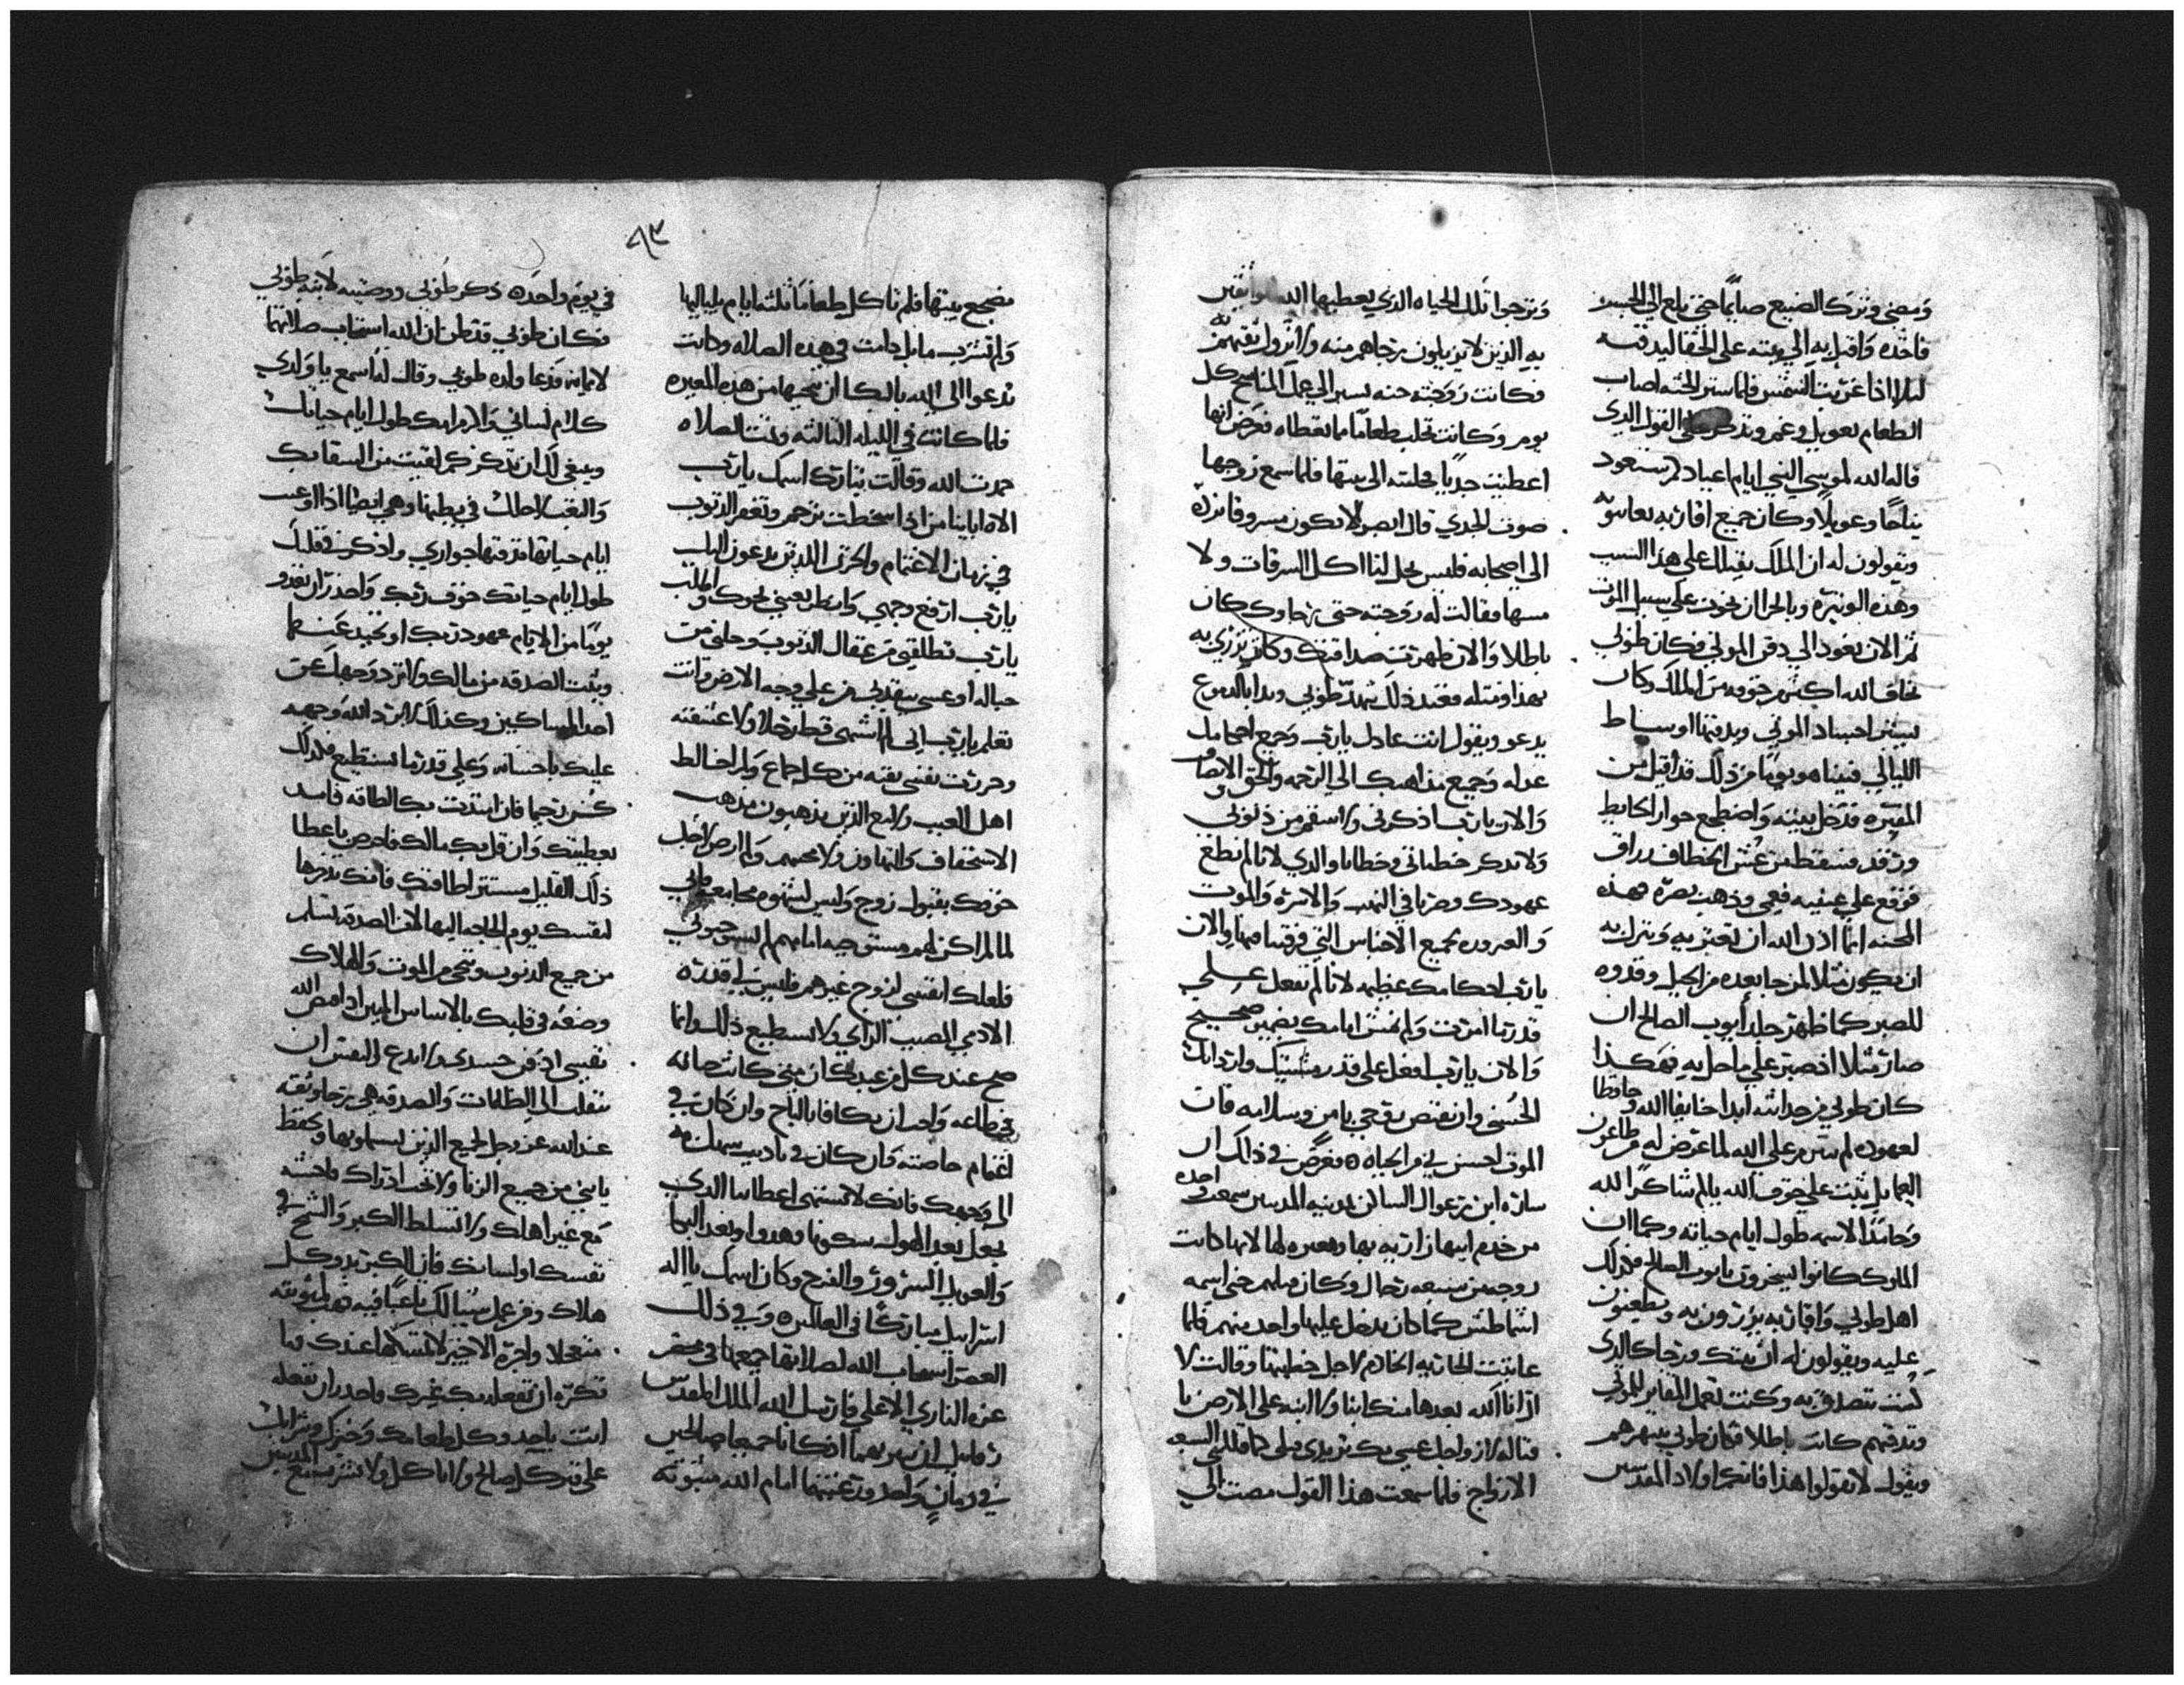 ومضى وترك الضيع صايمًا حتى بلغ الي الجسد
فاخذه واقبل به الي بيته على الخفا ليدفنه
ليلا اذا غربت الشمس فلما ستر الجثه اصاب
الطعام بعويل وغم وتذكر على القول الذي
قاله الله لموسي النبي ايام اعيادكم ستعود
نياحًا وعويلا وكان جميع اقاربه يعاتبوه
ويقولون له ان الملك بقتلك على هذا السبب
وهذه الوتيره وبالحرا ان نجوت على سبيل الموت
ثم الان تعود الي دفن الموتي فكان طوبي
يخاف الله اكثر من خوفه من الملك وكان
يستر اجساد الموتي ويدفنها اوساط
الليالي فبينا هو يومًا من ذلك قد اقبل من
المقبره فدخل بيته واضطجع جوار الحايط
ورقد فسقط من عش الخطاف زراق
فوقع على عينيه فعمي وذهب بصره فهذه
المحنه انما اذن الله ان تعتريه وتنزل به
ان يكون مثلا لمن جا بعده من الجيل وقدوه
للصبر كما ظهر جلد أيوب الصالح ان
صار مثلا اذ صبر على ما حل به فهكذا
كان طوبي من حداثته ابدا خايفا الله وحافظا
لعهوده لم يتذمر على الله لما عرض له من طاعون
العما بل ثبت على خوف الله بالم شاكرًا لله
وحامدًا لاسمه طول ايام حياته وكما ان
الملوك كانوا يسخرون بايوب الصالح فكذلك
اهل طوبي واقاربه يزرون به ويطعنون
عليه ويقولون له ان نيتك ورجاك الذي
كنت تتصدق به وكنت تعمل المقابر للموتي
وتدفنهم كانت باطلا فكان طوبي ينتهرهم
ويقول لا تقولوا هذا فانكم اولاد المقدسين
وترجوا تلك الحياه الذي يعطيها الله للواثقين
به الذين لا يزيلون رجاهم منه ولا يزول ثقتهم
فكانت زوجته حنه تسير الي عمل المناسج كل
يوم وكانت تجلب طعامًا مما تعطاه فعرض انها
اعطيت جديًا فجلبته الى بيتها فلما سمع زوجها
صوت الجدي قال ابصر لا يكون مسروقا نرده
الى اصحابه فليس يحل لنا اكل السرقات ولا
مسها فقالت له زوجته حتى رجاوك كان
باطلا والان ظهرت صدقتك وكانت تزري به
بهذا ومثله فعند ذلك تنهد طوبي وبدا بالدموع
يدعو ويقول انت عادل يارب وجميع احكامك
عدله وجميع مذاهبك الي الرحمه والحق والانصاف
والان يارب اذكرني ولا تنتقم من ذنوبي
ولا تذكر خطيائي وخطايا والدي لانا لم نطع
عهودك وصرنا في النهب والاسره والموت
والعبره بجميع الاجناس التي فرقتنا فيها والان
يارب احكامك عظيمه لانا لم نفعل علي
قدر ما امرت ولم نمش امامك بضمير صحيح
والان يارب افعل على قدر مشيتك وارادتك
الحسنى وان تقبض روحي بامن وسلامه فان
الموت احسن لي من الحياه ٥ فعرض في ذلك ان
ساره ابنت رعوال الساكن بمدينه المدينين سمعت واحده
من خدم ابيها زاريه بها ومعيره لها لانها كانت
زوجت من سبعه رجال وكان فيلهم جني اسمه
اشماطش كما كان يدخل عليها واحد منهم فلما
عاتبت الجاريه الخادم لاجل خطيتها وقالت لا
ارانا الله بعدها منك ابنا ولا ابنه على الارض يا
قتاله ازواجك عسى بك تريدي قتلي كما قتلتي السبعه
الازواج فلما سمعت هذا القول مضت الي
٩٣
مضجع بيتها فلم تاكل طعامًا ثلثه ايام بلياليها
ولم تشرب ما بل دامت في هذه الصلاه وكانت
تدعوا الى الله بالبكا ان ينجيها من هذه المعيره
فلما كانت في الليله الثالثه وتمت الصلاه
حمدت الله وقالت تبارك اسمك يارب
الاه اباينا من اذا سخطت ترحم وتغفر الذنوب
في زمان الاغتمام والحزن الذين يدعون اليك
يارب ارفع وجهي وانظر بعيني نحوك واطلب
يارب تطلقني من عقال الذنوب وحلني من
حباله او عسى ينقذني من على وجه الارض وانت
تعلم يارب اني لم اشتهي قط رجلا ولا عشقته
وحررت نفسي نقيه من كل جماع ولم اخالط
اهل العيب ولا مع الذين يذهبون مذهب
الاستخفاف والتهاون ولا صحبتهم ولم ارض لاجل
خوفك بقبول زوج وليس لشهوه مجامعه فاني
لما لم اكن لهم مستوجبه اما هم لم يستوجبوني
فلعلك انفسي لزوج غيرهم فليس في قدرة
الادمي المصيب الراي ولا يستطيع ذلك وانما
صح عند كل من عبدك ان متى كانت حياته
في طاعه واحب ان يكافا بالتاج وان كان في
اغتمام خلصته وان كان في تاديب سهلت له
الي رحمتك فانك لا تشتهي اعطابنا الذي
يجعل بعد الهول سكونا وهدوا وبعد البكا
والعويل السرور والفرح وكان اسمك يا اله
اسرايل مباركًا في العالمين ٥ وفي ذلك
العصر استجاب الله لصلاتهما جميعا في محضر
عزه الناري الاعلي فارسل الله الملك المقدس
رفاييل ان يبريهما اذ كانا جميعا صالحين
في زمان واحد ورغبتهما امام الله مثبوته
في يوم واحده ذكر طوبي ووصيته لابنه طوبي
فكان طوبي قد ظن ان الله استجاب صلاتهما
لايمانه فدعا ولده طوبي وقال له اسمع يا ولدي
كلام لساني والزم امك طول ايام حياتك
وينبغي لك ان تذكر كم لقيت من السقامك
والتعب لاجلك في بطنها وهي ايضا اذا اوعبت
ايام حياتها فتدفنها جواري واذكر في قلبك
طول ايام حياتك خوف ربك واحذر ان تعدو
يومًا من الايام عهود ربك او تحيد عنها
وثبت الصدقه من مالك ولا ترد وجهك عن
احد المساكين وكذلك لا يرد الله وجهه
عليك باحسانه وعلى قدر ما تستطيع فكذلك
كن رحيما فان ابتدت بك الطاقه فابد
بعطيتك وان قل بك مالك فاحرص باعطا
ذلك القليل مستتر لطاقتك فانك تذخرها
لنفسك يوم الحاجه اليها لان الصدقه تسلم
من جميع الذنوب وتنجي من الموت والهلاك
وضعه في قلبك بالاساس المبين اذا قبض الله
نفسي ادفن جسدي ولا تدع النفس ان
تنقلب الى الظلمات والصدقه هي رجا وثقه
عند الله عز وجل لجميع الذين يستعملونها وتحفظ
يا بني من جميع الزنا ولا تحب ادراك فاحشه
مع غير اهلك ولا تسلط الكبر والشح في
نفسك او لسانك فان الكبر بدو كل
هلاك ومن عمل شيا لك تاعبًا فيه فهب له مثوبته
متعجلا واجرة الاجير لا تمسكها عندك وما
تكره ان تفعله بك غيرك فاحذر ان تفعله
انت باحد وكل طعامك وخبزك وشرابك
على قبر كل صالح ولا تاكل ولا تشرب مع المذنبين